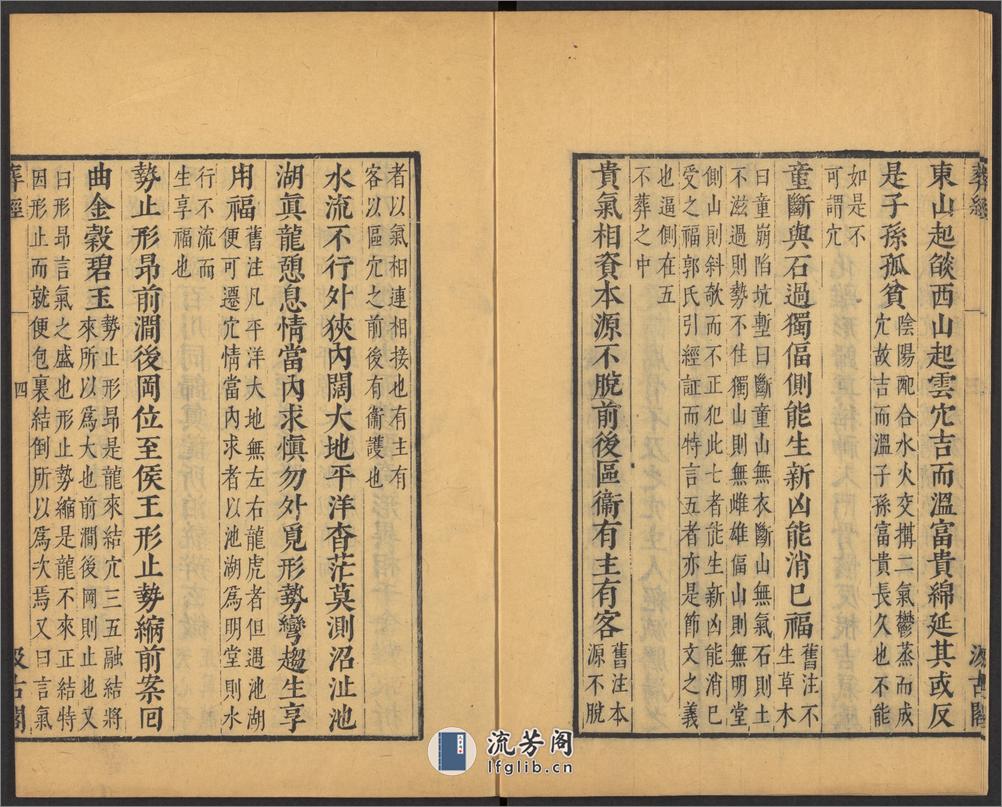 葬經
汲古閣
東山起燄西山起雲穴吉而溫富貴綿延其或反
是子孫孤貧
陰陽配合水火交搆二氣鬱蒸而成
穴故吉而溫子孫富貴長久也不能
如是不
可謂穴
童斷與石過獨偪側能生新凶能消已福
舊注不
生草木
曰童崩陷坑塹曰斷童山無衣斷山無氣石則土
不滋過則勢不住獨山則無雌雄偪山則無明堂
側山則斜欹而不正犯此七者能生新凶能消已
受之福郭氏引經証而特言五者亦是節文之義
也逼側在五
不葬之中
貴氣相資本源不脫前後區衞有主有客
舊注本
源不脫
者以氣相連相接也有主有
客以區穴之前後有衞護也
水流不行外狹內闊大地平洋杳茫莫測沼沚池
湖眞龍憩息情當內求愼勿外覓形勢彎趨生享
用福
舊注凡平洋大地無左右龍虎者但遇池湖
便可遷穴情當內求者以池湖爲明堂則水
行不流而
生享福也
勢止形昂前澗後岡位至侯王形止勢縮前案回
曲金穀碧玉
勢止形昂是龍來結穴三五融結將
來所以爲大也前澗後岡則止也又
曰形昂言氣之盛也形止勢縮是龍不來正結特
因形止而就便包裹結倒所以爲次焉又曰言氣
葬經
四
汲古閣
流芳阁
lfglib.cn